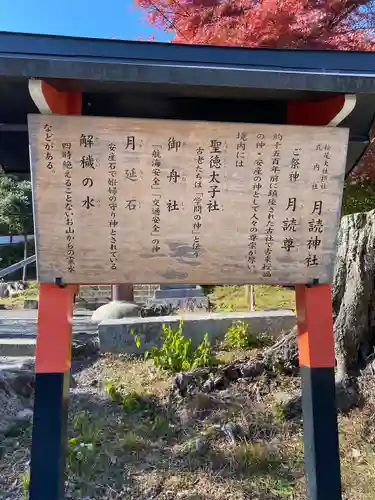 松尾大社摂社
式内社
月読神社
ご祭神 月読尊
約十五百年前に鎮座された古社で、古来
の神・安産の神として人々の尊宗が厚い。
境内には
聖徳太子社
古老らは「学問の神」と崇う
御舟社
「航海安全」「交通安全」の神
月延石
安産石で妊婦の守りとされている
解穢の水
四時絶えることないお山からの末水
などがある。